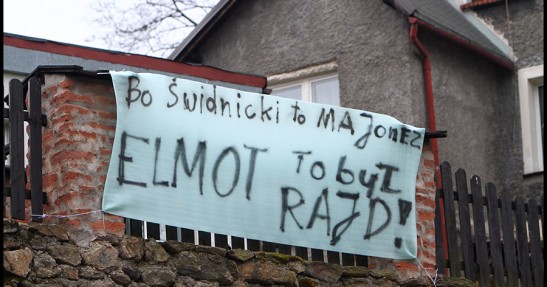 Bo Świdnicki to MAJonEZ
ELMOT To był
RAJD!